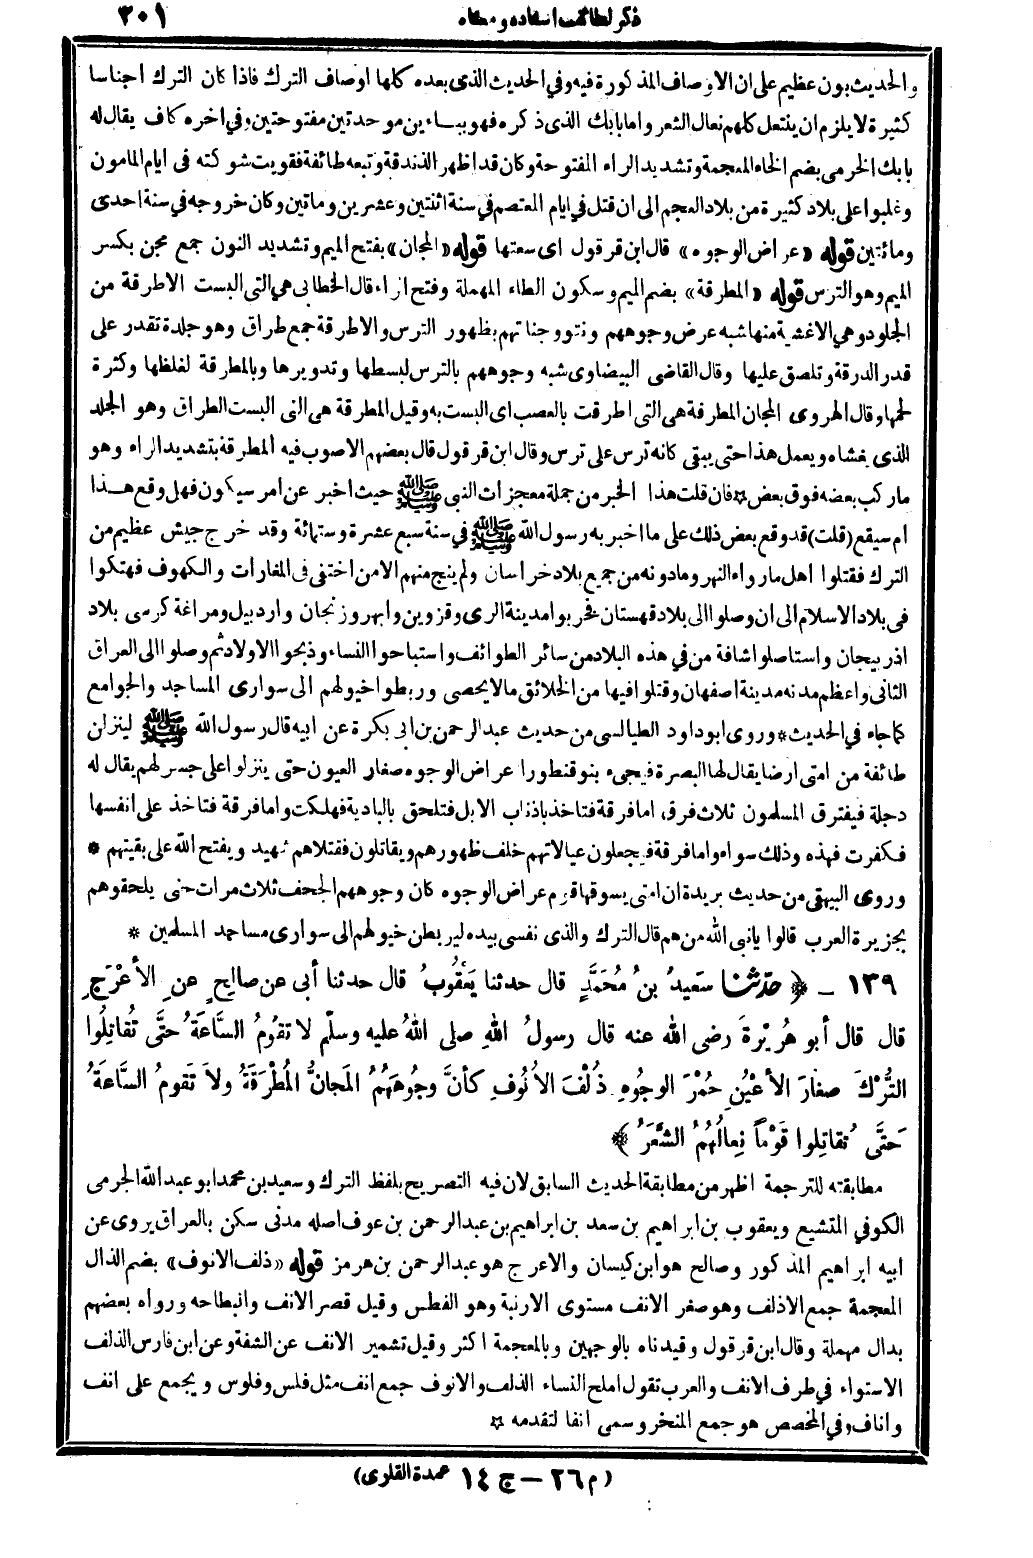 ذكر لطائف اسناده ومعناه ٢٠١
والحديث بون عظيم على ان الاوصاف المذكورة فيه وفي الحديث الذي بعده كلها اوصاف الترك فاذا كان الترك اجناسا
كثيرة لا يلزم ان ينتعل كلهم نعال الشعر واما بابك الذى ذكره فهو بباءين موحدتين مفتوحتين وفي اخره كاف يقال له
بابك الخرمى بضم الخاء المعجمة وتشديد الراء المفتوحة وكان قد اظهر الزندقة وتبعه طائفة فقويت شوكته فى ايام المامون
وغلبوا على بلاد كثيرة من بلاد العجم الى ان قتل في ايام المعتصم في سنة اثنتين وعشرين وماتين وكان خروجه في سنة احدى
ومائتين قوله «عراض الوجوه» قال ابن قرقول اى سعتها قوله «المجان» بفتح الميم وتشديد النون جمع مجن بكسر
الميم وهو الترس قوله «المطرقة» بضم الميم وسكون الطاء المهملة وفتح الراء قال الخطابى هي التى البست الاطرقة من
الجلود وهي الاغشية منها شبه عرض وجوههم ونتو وجناتهم بظهور الترس والاطرقة جمع طراق وهو جلدة تقدر على
قدر الدرقة وتلصق عليها وقال القاضى البيضاوى شبه وجوههم بالترس لبسطها وتدويرها وبالمطرقة لغلظها وكثرة
لحمها وقال الهروى المجان المطرقة هى التى اطرقت بالعصب اى البست به وقيل المطرقة هى التى البست الطراق وهو الجلد
الذى يغشاه ويعمل هذا حتى يبقى كانه ترس على ترس وقال ابن قرقول قال بعضهم الاصوب فيه المطرقة بتشديد الراء وهو
ما ركب بعضه فوق بعض * فان قلت هذا الخبر من جملة معجزات النبى ﷺ حيث اخبر عن امر سيكون فهل وقع هذا
ام سيقع (قلت) قد وقع بعض ذلك على ما اخبر به رسول الله ﷺ في سنة سبع عشرة وستمائة وقد خرج جيش عظيم من
الترك فقتلوا اهل ما رواء النهر وما دونه من جميع بلاد خراسان ولم ينج منهم الا من اختفى فى المغارات والكهوف فهتكوا
فى بلاد الاسلام الى ان وصلوا الى بلاد قهستان فخربوا مدينة الرى وقزوين وابهر وزنجان واردبيل ومراغة كرسى بلاد
اذربيجان واستاصلوا شافة من في هذه البلاد من سائر الطوائف واستباحوا النساء وذبحوا الاولاد ثم وصلوا الى العراق
الثانى واعظم مدنه مدينة اصفهان وقتلوا فيها من الخلائق ما لا يحصى وربطوا خيولهم الى سوارى المساجد والجوامع
كما جاء في الحديث * وروى ابو داود الطيالسى من حديث عبد الرحمن بن ابى بكرة عن ابيه قال رسول الله ﷺ لينزلن
طائفة من امتى ارضا يقال لها البصرة فيجىء بنو قنطورا عراض الوجوه صغار العيون حتى ينزلوا على جسر لهم يقال له
دجلة فيفترق المسلمون ثلاث فرق اما فرقة فتاخذ باذناب الابل فتلحق بالبادية فهلكت واما فرقة فتاخذ على انفسها
فكفرت فهذه وذلك سواء واما فرقة فيجعلون عيالاتهم خلف ظهورهم ويقاتلون فقتلاهم شهيد ويفتح الله على بقيتهم *
وروى البيهقى من حديث بريدة ان امتى يسوقها قوم عراض الوجوه كان وجوههم الجحف ثلاث مرات حتى يلحقوهم
بجزيرة العرب قالوا يا نبى الله من هم قال الترك والذى نفسى بيده ليربطن خيولهم الى سوارى مساجد المسلمين *
١٣٩ - ﴿ حدّثنا سَعِيدُ بنُ مُحَمَّدٍ قال حدثنا يَعْقُوبُ قال حدثنا أبى عن صالِحٍ عنِ الأعْرَجِ
قال قال أبو هُرَيْرَةَ رضى الله عنه قال رسولُ اللهِ صلى اللهُ عليه وسلّم لا تقُومُ السَّاعَةُ حتَّى تُقاتِلُوا
التُّرْكَ صغارَ الأعْيُنِ حُمْرَ الوجُوهِ ذُلْفَ الأنُوفِ كأنَّ وجُوهَهُمُ المَجانُّ المُطْرَقَةُ ولاَ تَقومُ السَّاعَةُ
حَتَّى تُقاتِلُوا قَوْماً نِعالُهُمُ الشَّعَرُ * ﴾
مطابقته للترجمة اظهر من مطابقة الحديث السابق لان فيه التصريح بلفظ الترك وسعيد بن محمد ابو عبد الله الجرمى
الكوفي المتشيع ويعقوب بن ابراهيم بن سعد بن ابراهيم بن عبد الرحمن بن عوف اصله مدنى سكن بالعراق يروى عن
ابيه ابراهيم المذكور وصالح هو ابن كيسان والاعرج هو عبد الرحمن بن هرمز قوله «ذلف الانوف» بضم الذال
المعجمة جمع الاذلف وهو صغر الانف مستوى الارنبة وهو الفطس وقيل قصر الانف وانبطاحه ورواه بعضهم
بدال مهملة وقال ابن قرقول وقيدناه بالوجهين وبالمعجمة اكثر وقيل تشمير الانف عن الشفة وعن ابن فارس الذلف
الاستواء في طرف الانف والعرب تقول املح النساء الذلف والانوف جمع انف مثل فلس وفلوس ويجمع على انف
واناف وفي المخصص هو جمع المنخر وسمى انفا لتقدمه *
(م ٢٦ - ج ١٤ عمدة القارى)